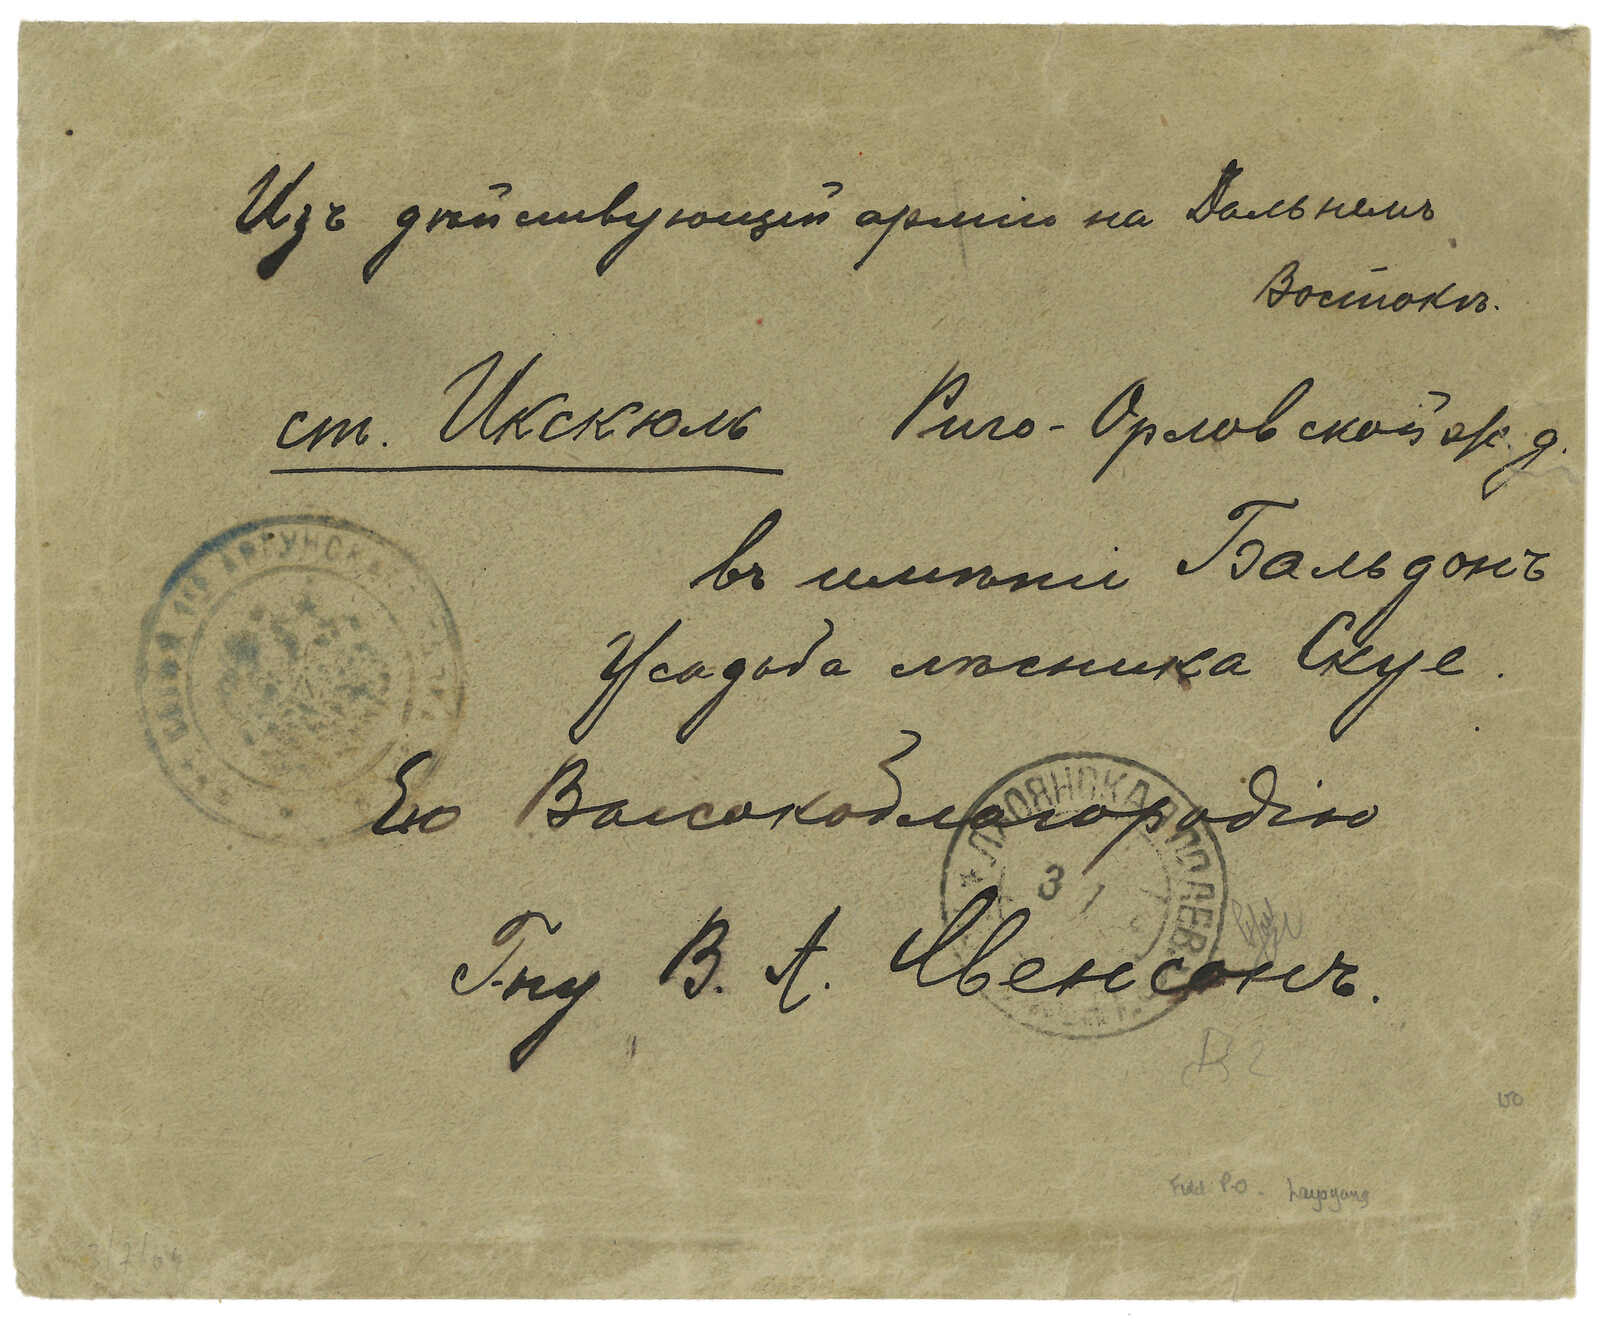 Изъ дѣйствующей арміи на Дальнемъ
Востокѣ.
ст. Икскюль Риго-Орловской ж. д.
въ имѣніи Бальдонъ
Усадьба лѣсника Скуе.
Его Высокоблагородію
Г-ну В. А. Свенсонъ.
АРГУНСКА
ЛЯОЯНСКАЯ ПОЛЕВ
3
Field P.O. Layoyang
150
3/7/04